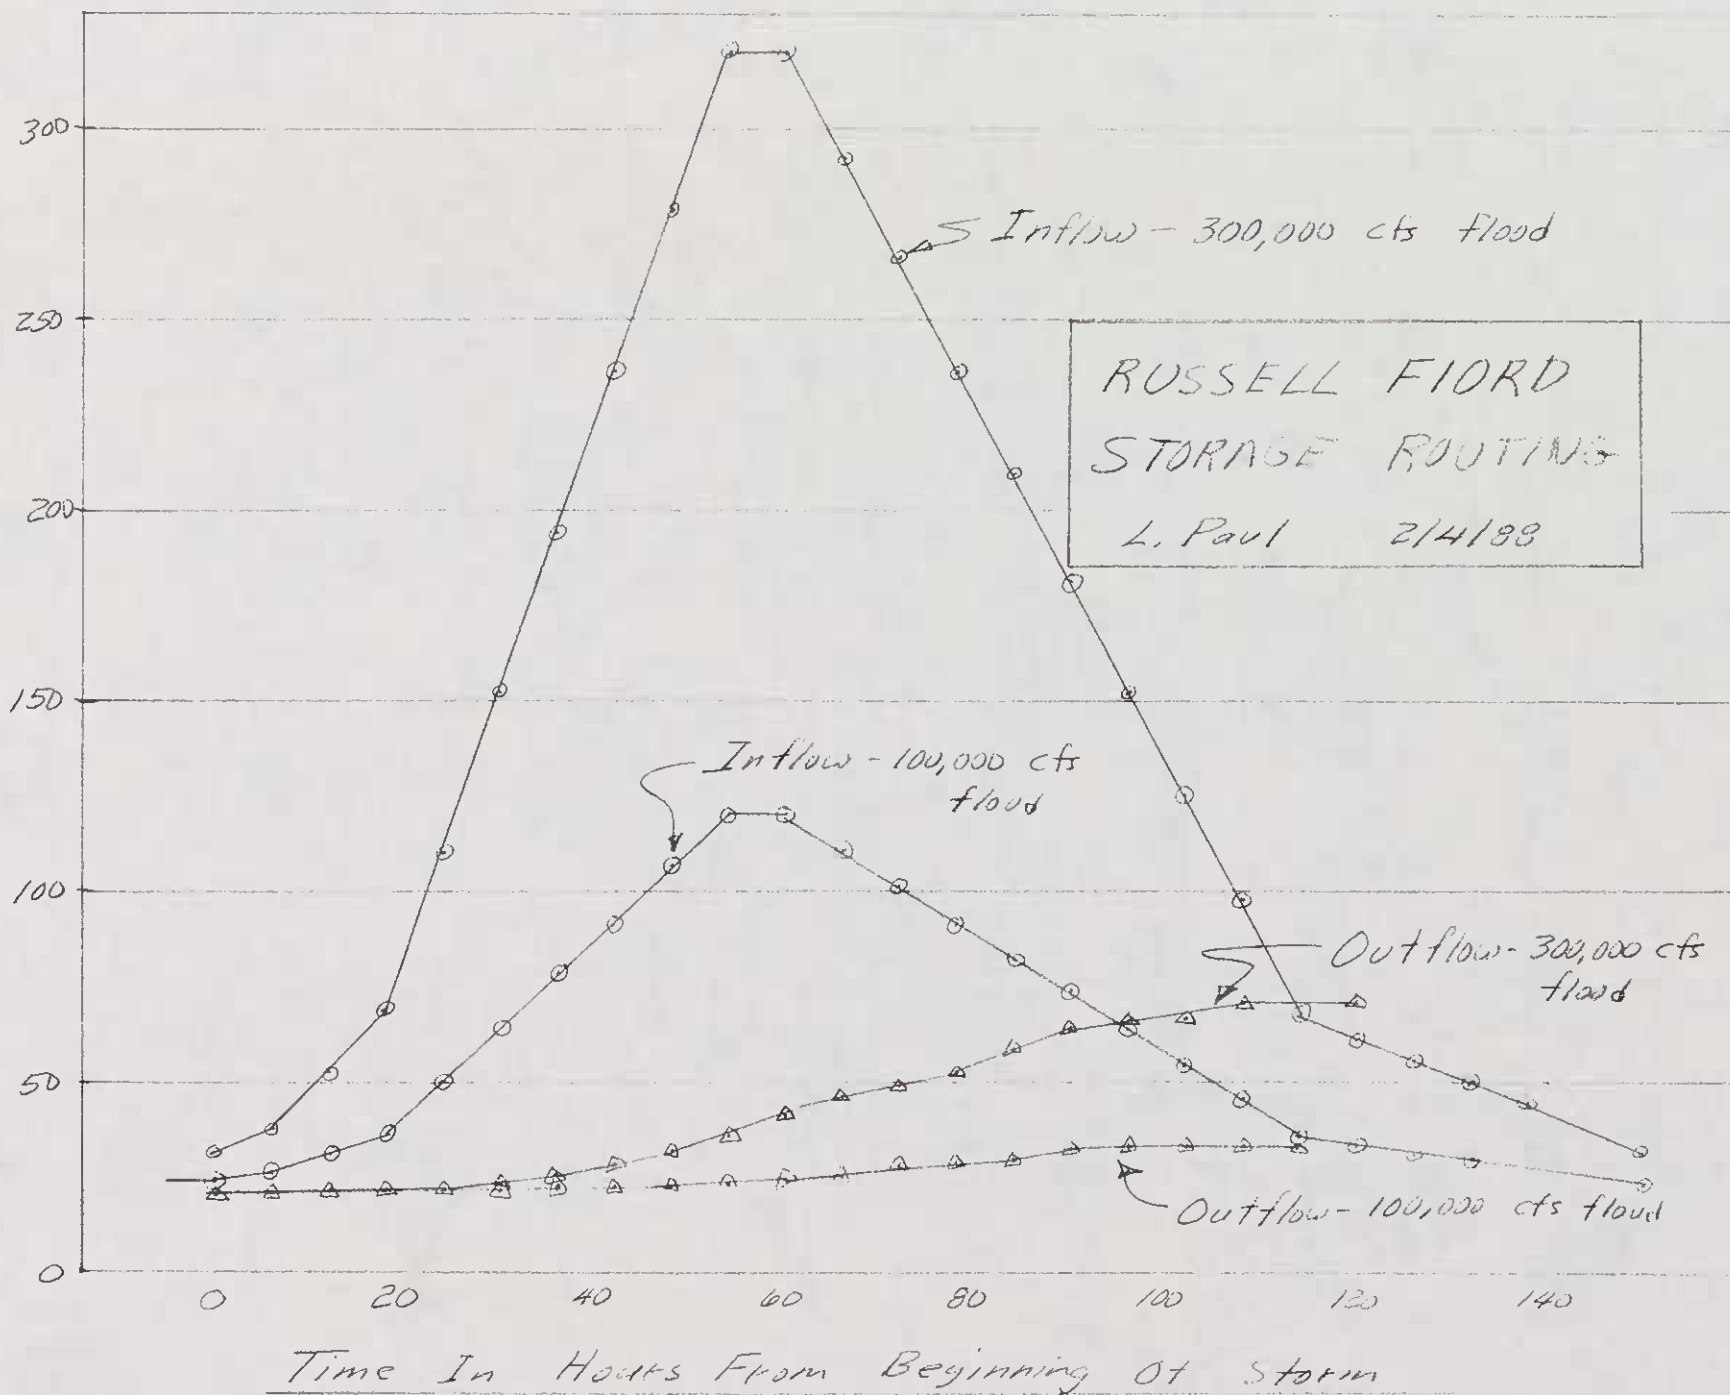 300
250
200
150
100
50
0
Inflow - 300,000 cfs flood
RUSSELL FIORD
STORAGE ROUTING
L. Paul 2/4/88
Inflow - 100,000 cfs
flood
Outflow - 300,000 cfs
flood
Outflow - 100,000 cfs flood
0 20 40 60 80 100 120 140
Time In Hours From Beginning Of Storm